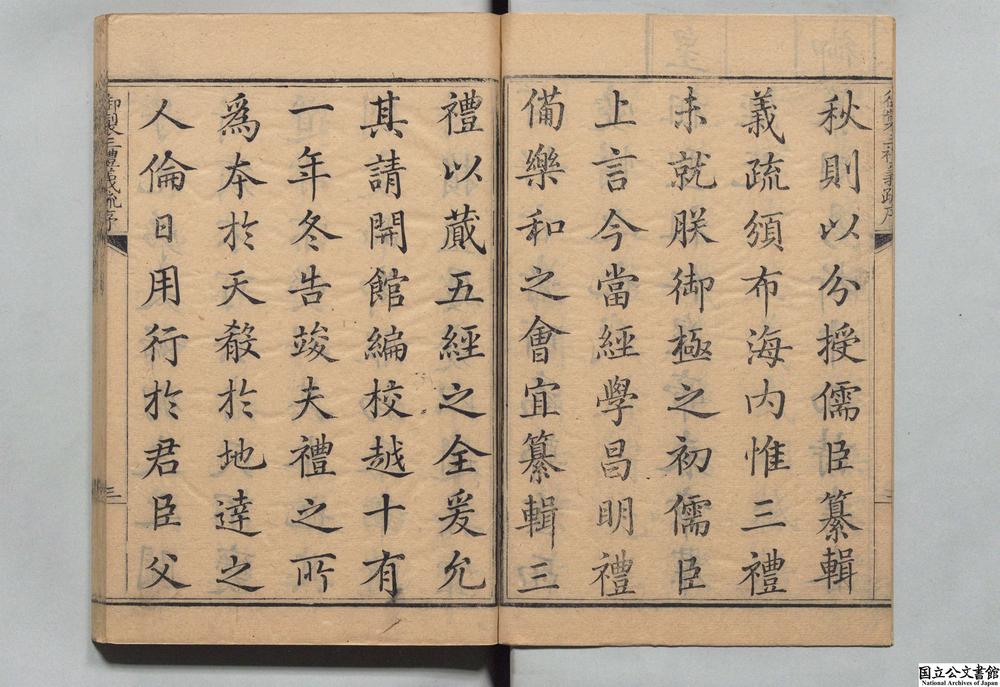 秋則以分授儒臣纂輯
義疏頒布海内惟三禮
未就朕御極之初儒臣
上言今當經學昌明禮
備樂和之會宜纂輯三
禮以蕆五經之全爰允
其請開館編校越十有
一年冬告竣夫禮之所
為本於天殽於地達之
人倫日用行於君臣父
御製三禮義疏序
三
国立公文書館
National Archives of Japan